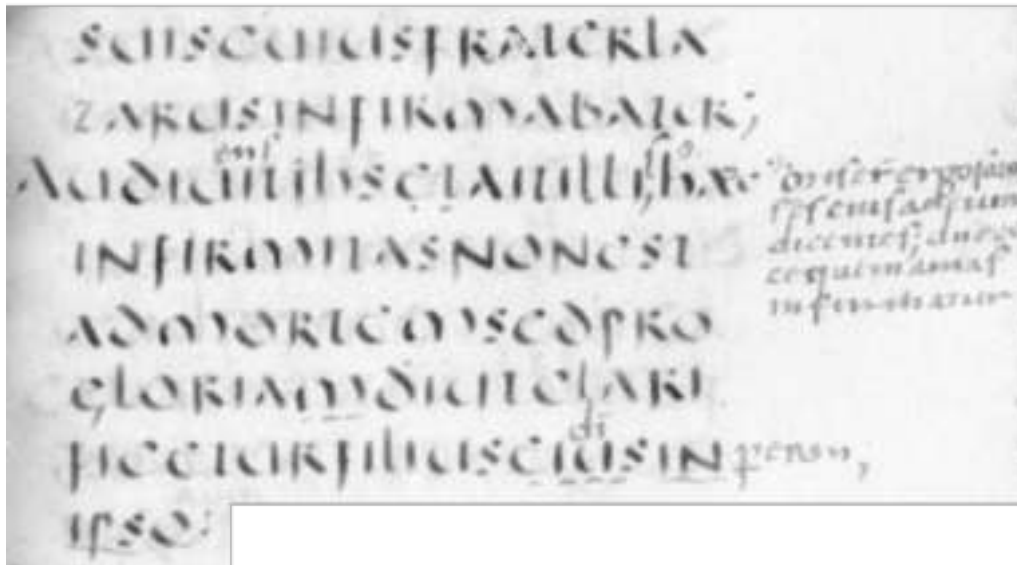 SUISCUIUSFRATERLA
ZARUSINFIRMABATUR;
ens
AUDIUITIHSETAITILLI
INFIRMITASNONEST
ADMORTEMSEDPRO
GLORIAMDIUTCLARI
di
FICETURFILIUSEIUSIN per eum,
IPSO:
ergo
res eius ad eum
dicentes; dne ec
ce quem amas
infirmatur